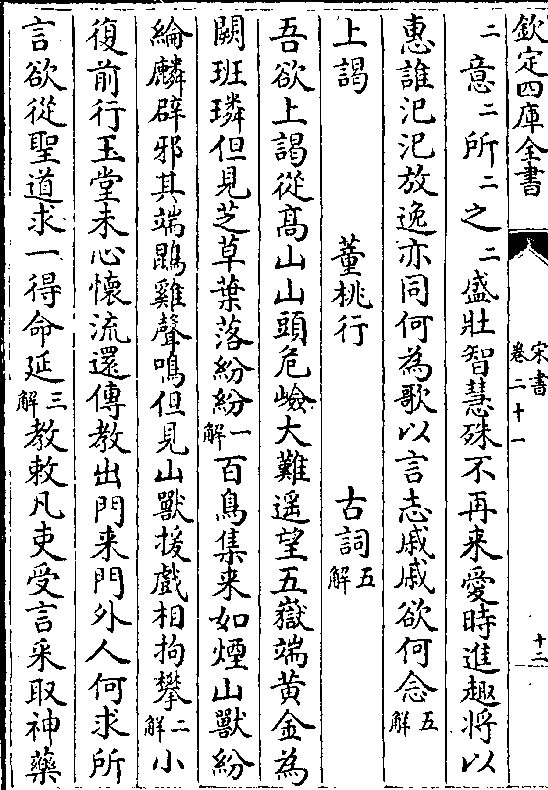 欽定四庫全書
宋書
卷二十一
十三
二意二所二之二盛壯智慧殊不再来愛時進趣將以
惠誰汜汜放逸亦同何為歌以言志戚戚欲何念五解
上謁 董桃行 古詞五解
吾欲上謁從髙山山頭危嶮大難遥望五嶽端黄金為
闕班璘但見芝草葉落紛紛一解百鳥集来如煙山獸紛
綸麟辟邪其端鵾雞聲鳴但見山獸援戲相拘攀二解小
復前行玉堂未心懷流還傳教出門来門外人何求所
言欲從聖道求一得命延三解教敕凡吏受言采取神藥